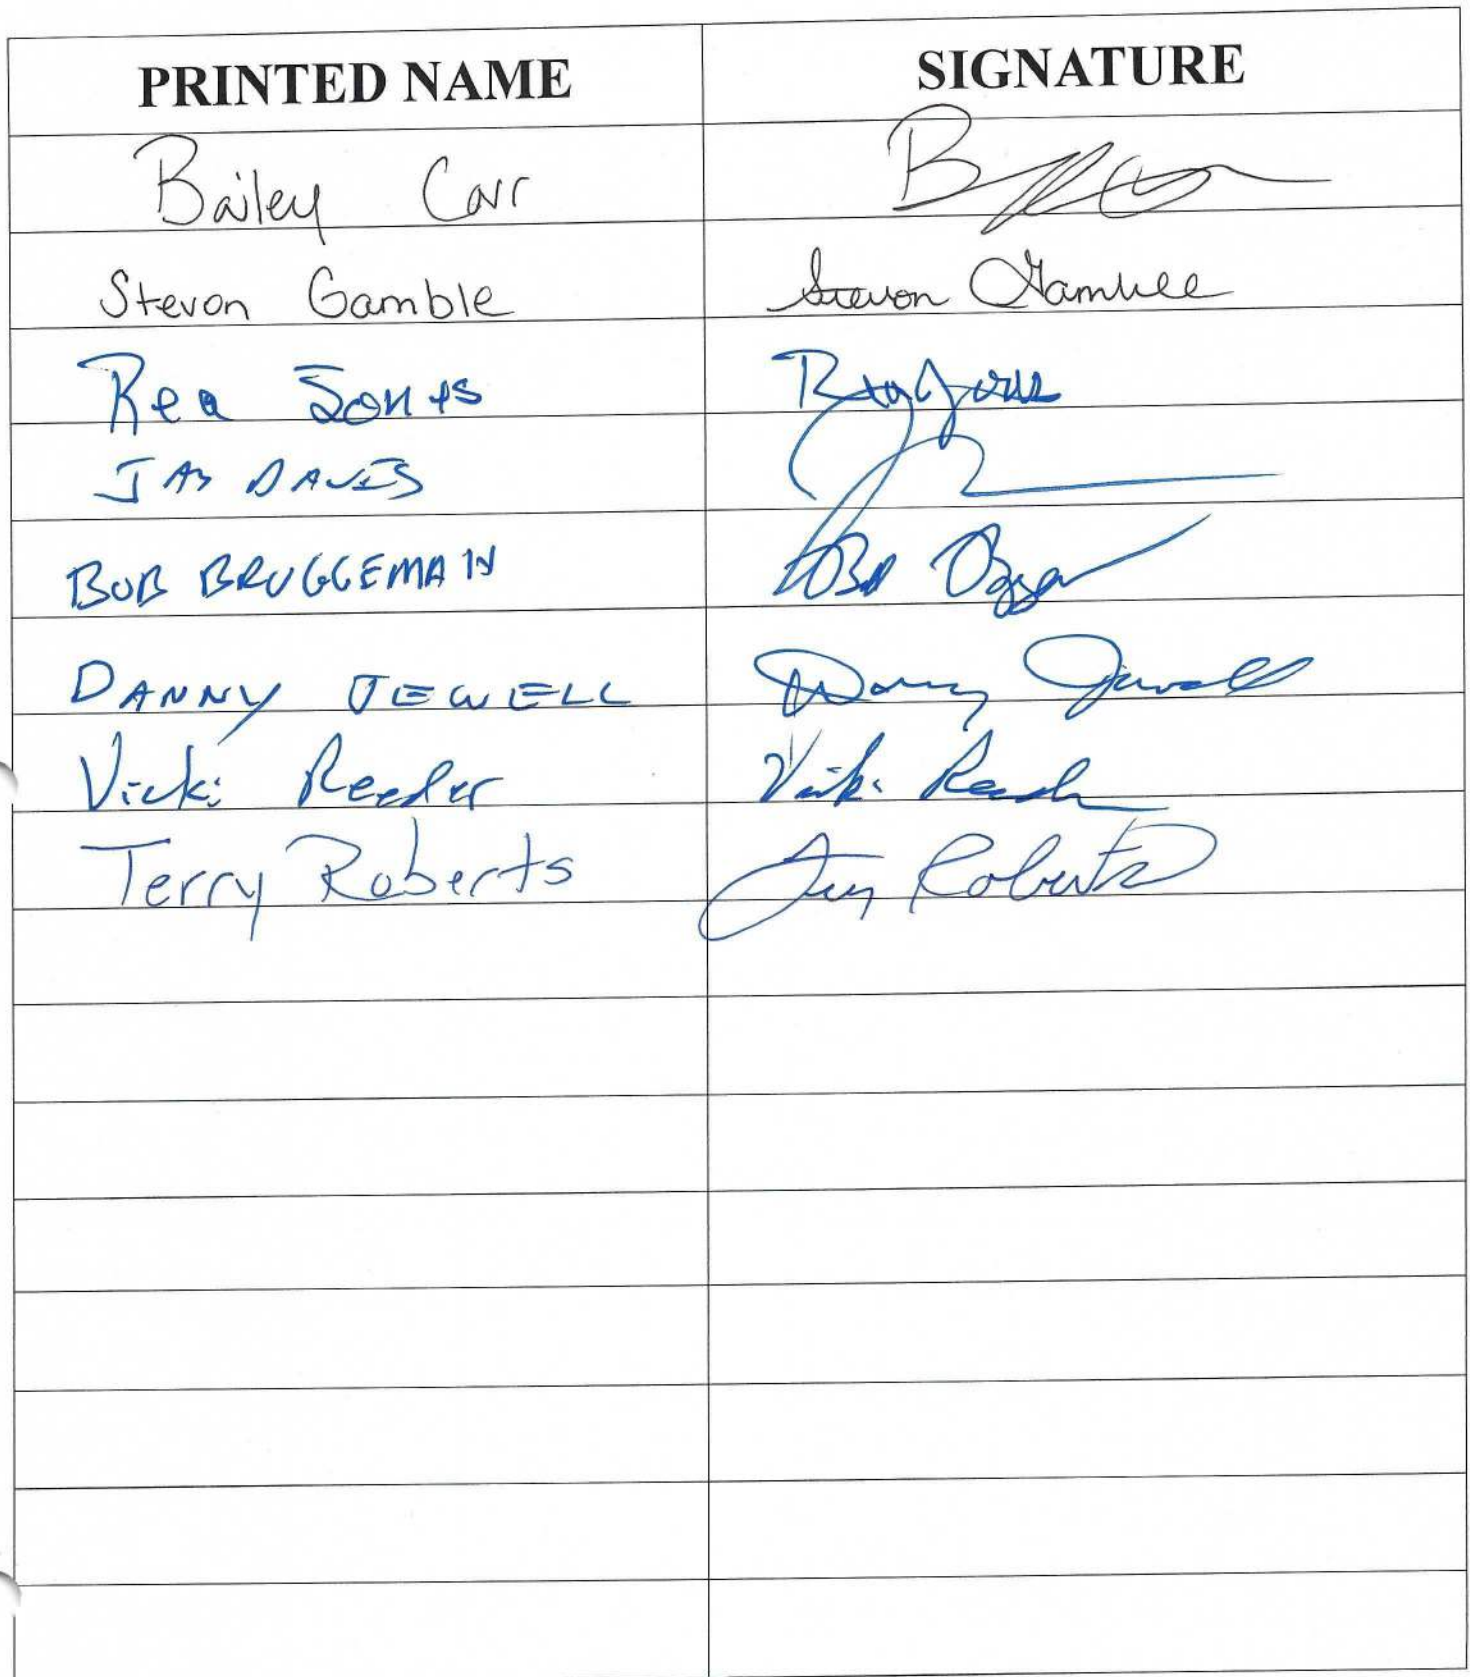 PRINTED NAME SIGNATURE
Bailey Carr
Stevon Gamble Stevon Gamble
Rea Jones
JAY DAVIS
BOB BRUGGEMAN
DANNY JEWELL Danny Jewell
Vicki Reeder Vicki Reeder
Terry Roberts Terry Roberts